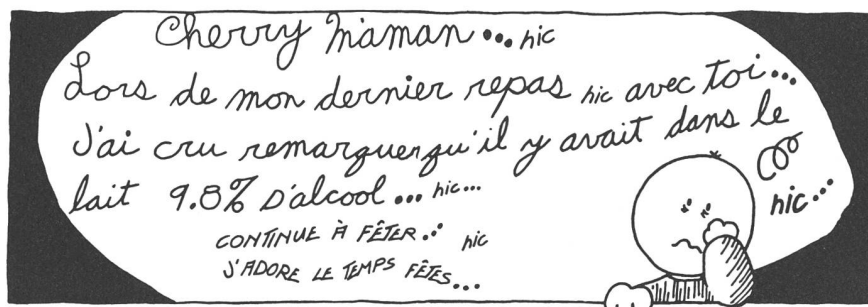 Cherry Maman... hic
Lors de mon dernier repas hic avec toi...
J'ai cru remarquer qu'il y avait dans le
lait 9.8% D'alcool... hic...
hic...
CONTINUE À FÊTER... hic
J'ADORE LE TEMPS FÊTES...